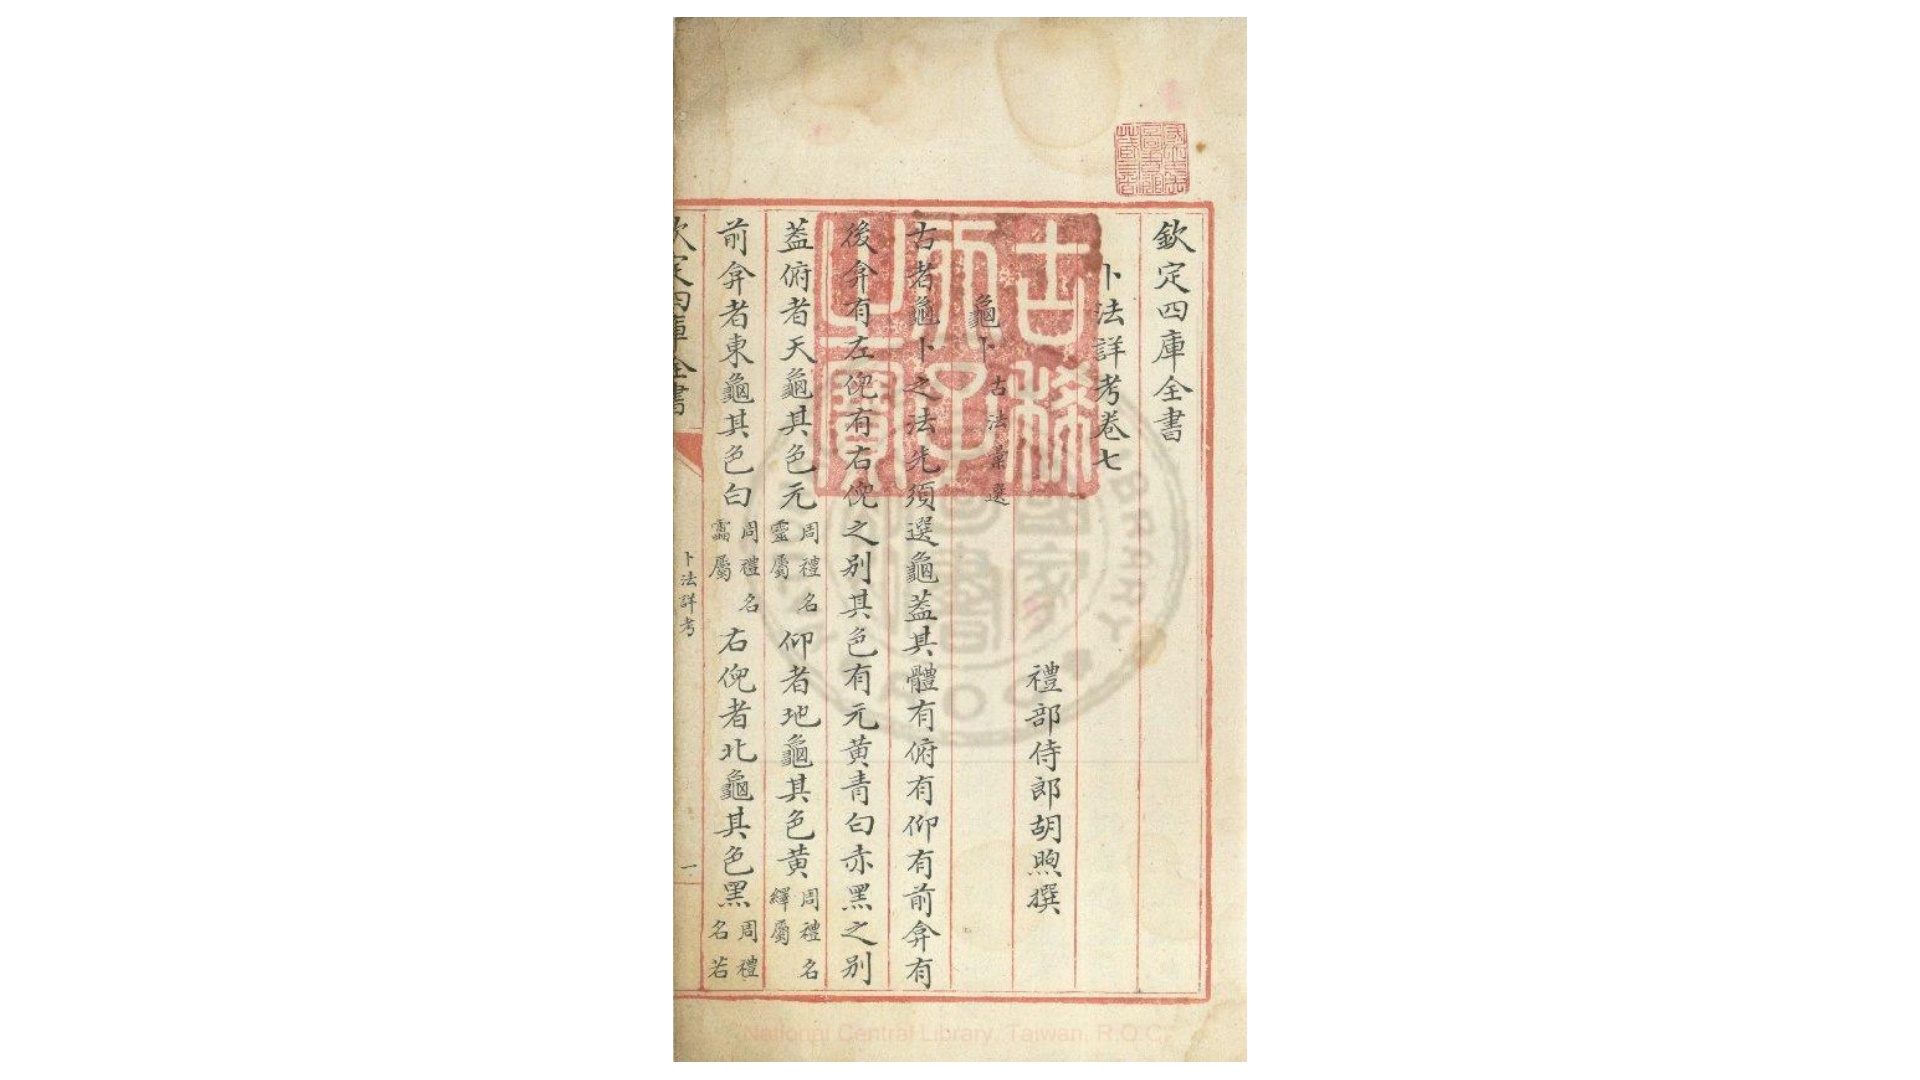 欽定四庫全書
卜法詳考卷七
禮部侍郎胡煦撰
龜卜古法彙選
古者龜卜之法先須選龜蓋其體有俯有仰有前弇有
後弇有左倪有右倪之别其色有元黄青白赤黑之别
葢俯者天龜其色元周禮名靈屬仰者地龜其色黄周禮名繹屬
前弇者東龜其色白周禮名靁屬右倪者北龜其色黑周禮名若
欽定四庫全書
卜法詳考
一
古稀天子之寶
國立中央圖書館藏書
National Central Library, Taiwan, R.O.C.